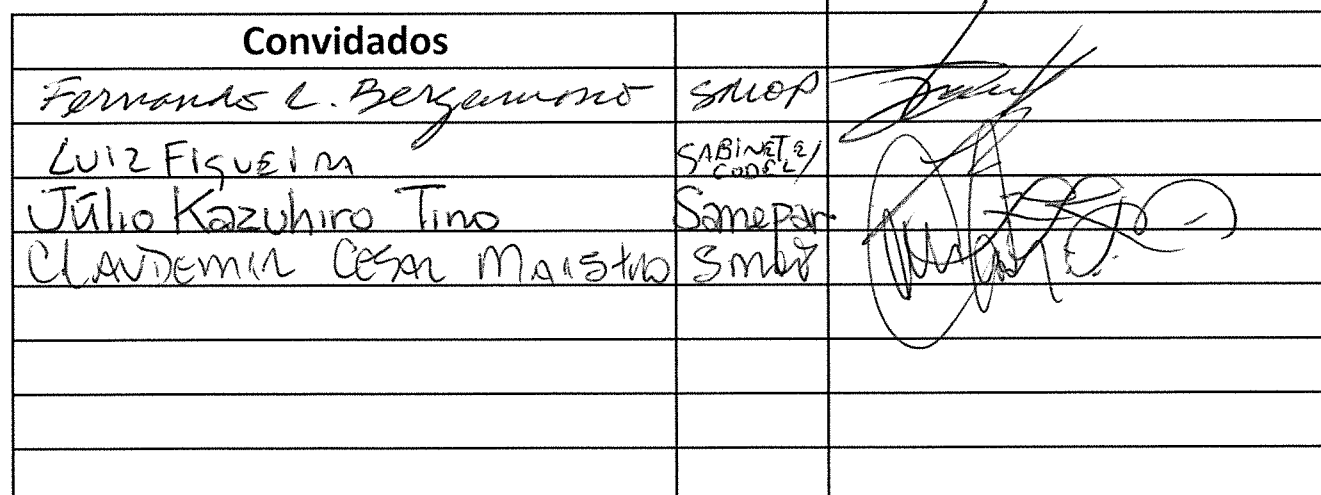 Convidados
Fernando L. Bergamasco SMOP
LUIZ FIGUEIRA GABINETE/ CODEL
Júlio Kazuhiro Tino Sanepar
CLAUDEMIR CESAR MAISTRO